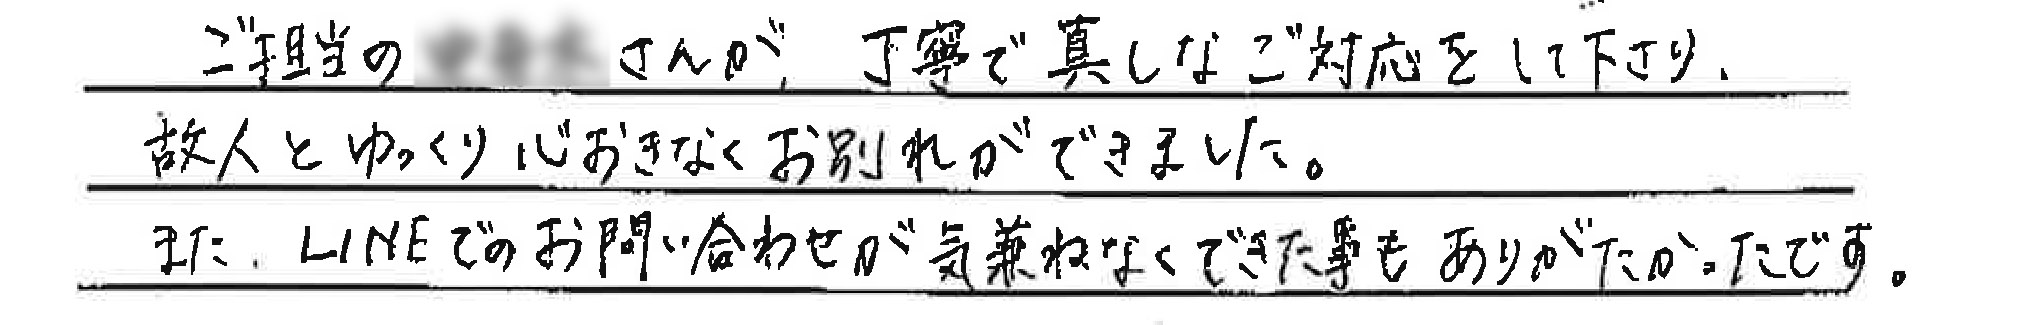 ご担当の さんが、丁寧で真しなご対応をして下さり、
故人とゆっくり心おきなくお別れができました。
また、LINEでのお問い合わせが気兼ねなくできた事もありがたかったです。